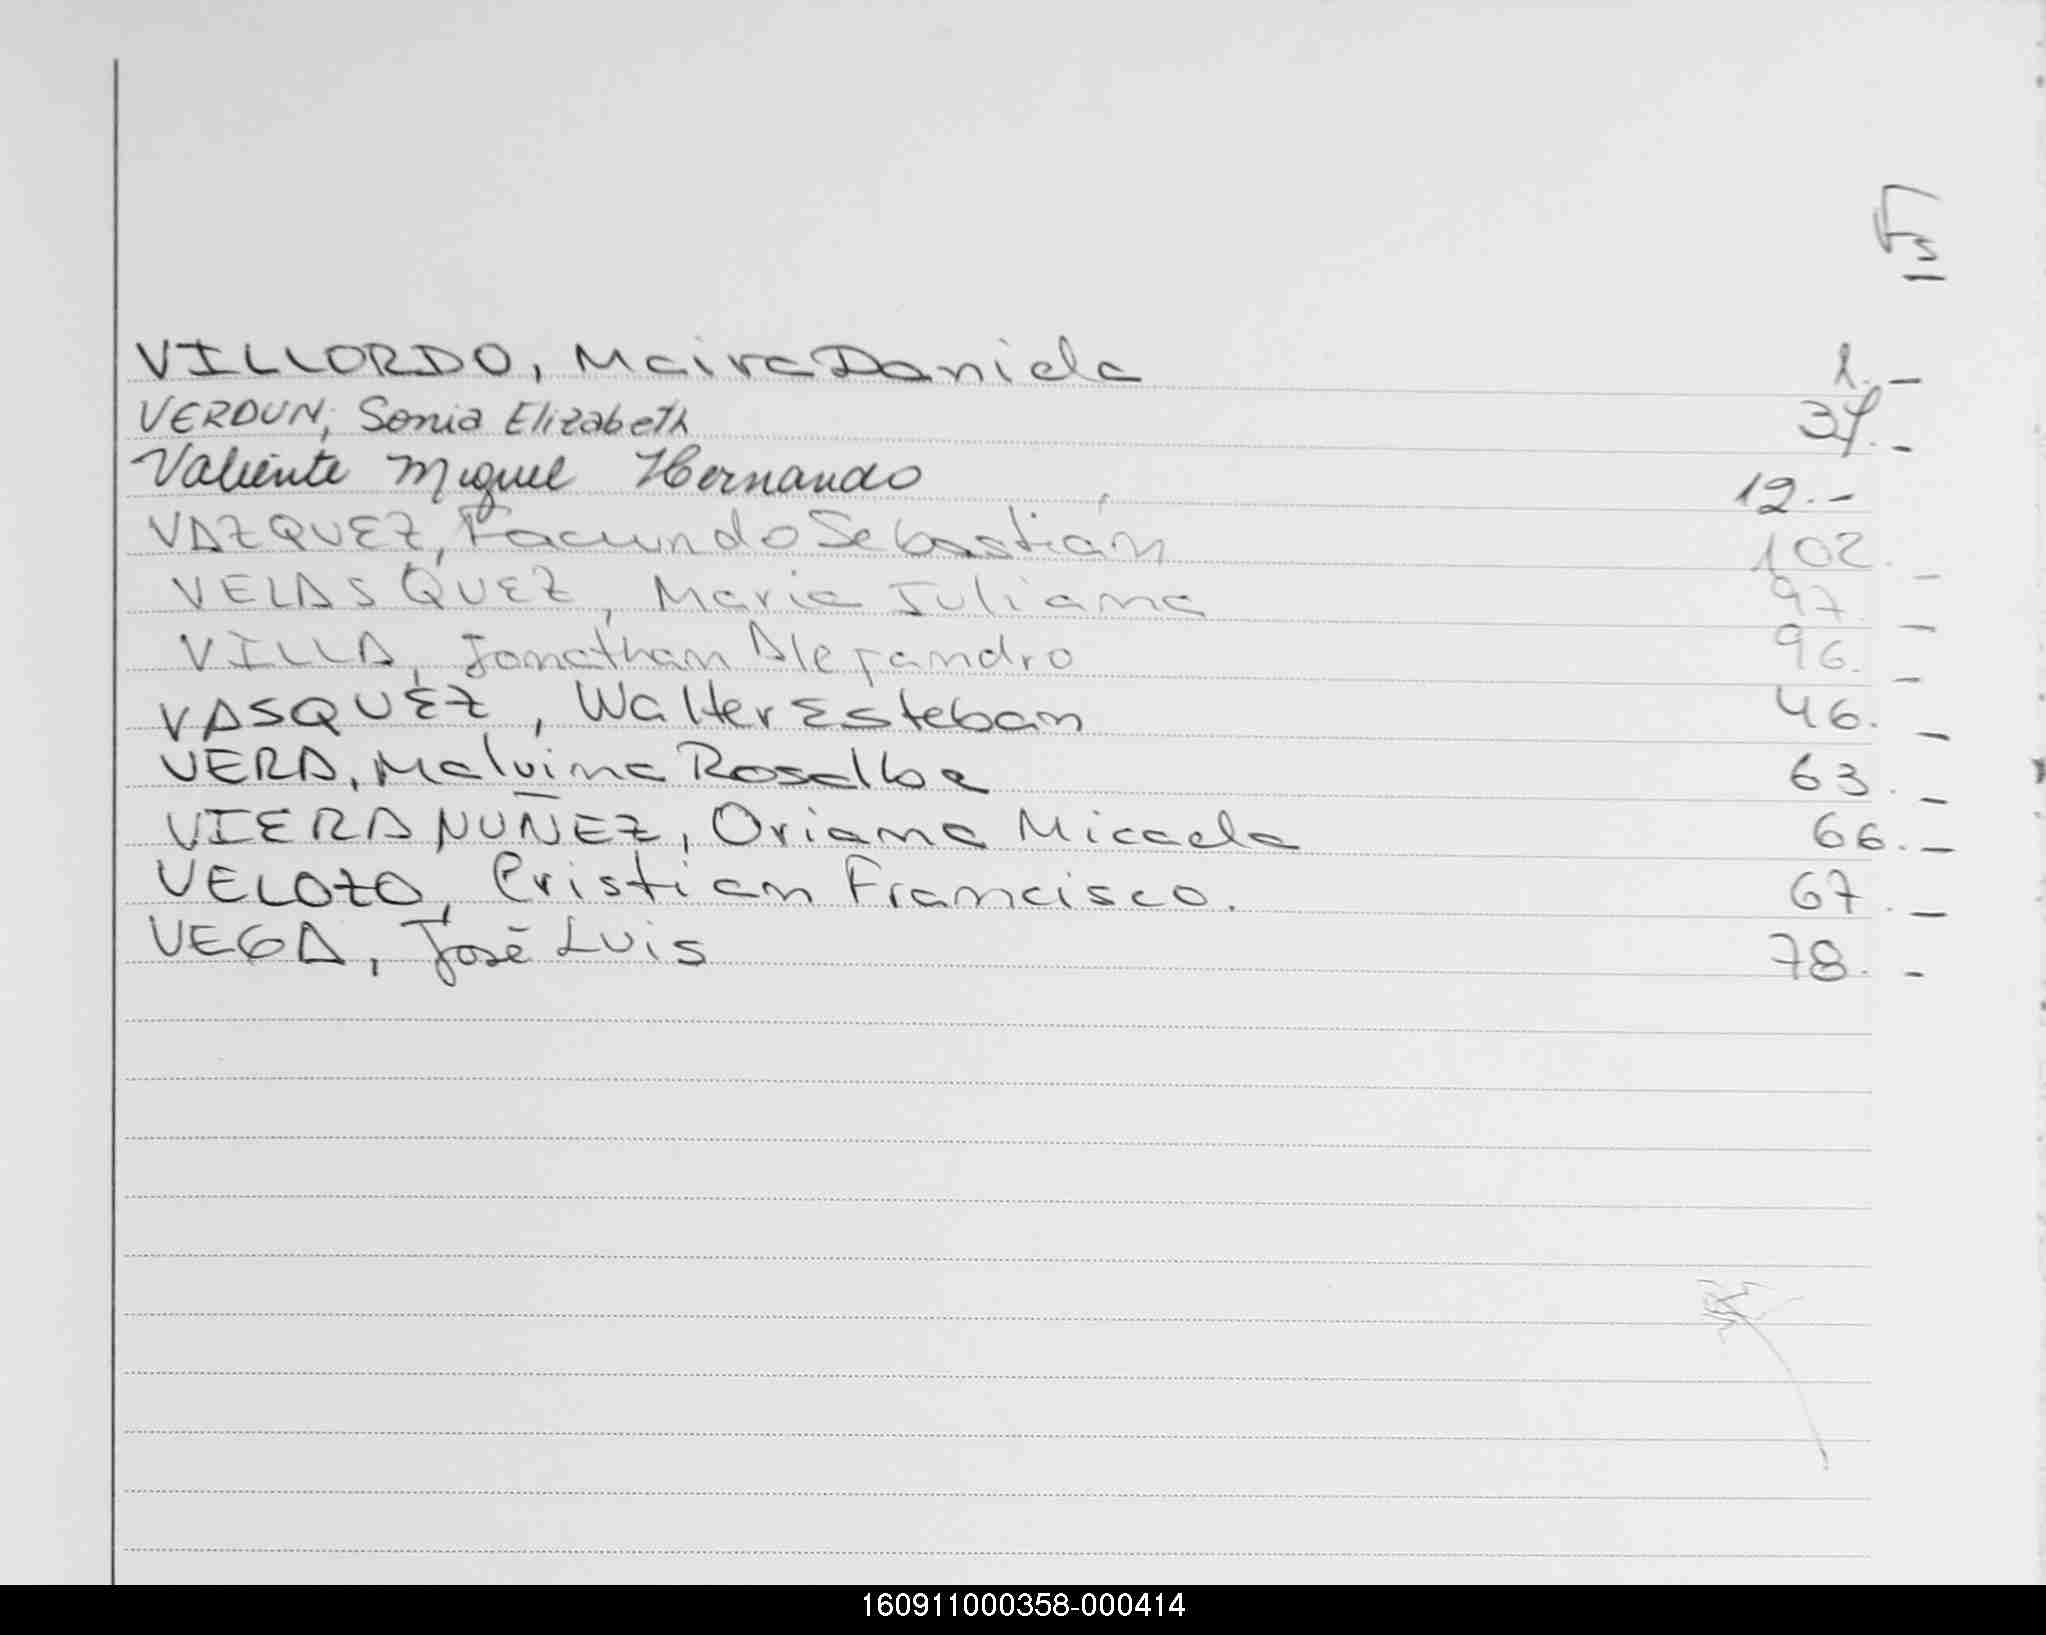 VILLORDO, Maira Daniela 1.-
VERDUN, Sonia Elizabeth 37.-
Valiente Miguel Hernando 12.-
VAZQUEZ, Facundo Sebastián 102.-
VELASQUEZ, Maria Juliana 97.-
VILLA, Jonathan Alejandro 96.-
VASQUEZ, Walter Esteban 46.-
VERA, Malvina Rosalba 63.-
VIERA NUÑEZ, Oriana Micaela 66.-
VELOZO, Cristian Francisco. 67.-
VEGA, José Luis 78.-
160911000358-000414